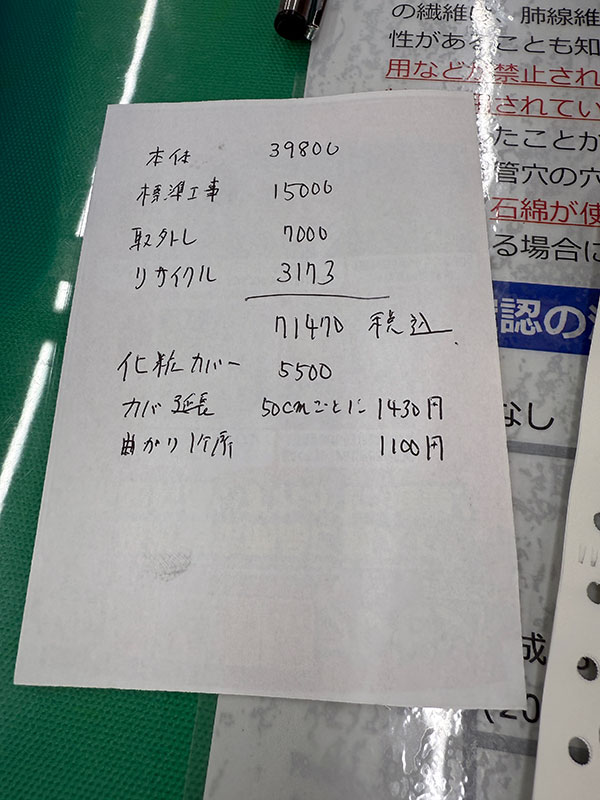 本体 39800
標準工事 15000
取外し 7000
リサイクル 3173
71470 税込
化粧カバー 5500
カバ延長 50cmごとに 1430円
曲がり1ケ所 1100円
の繊維は、肺線維
性があることも知
用などが禁止され
されてい
たことか
管穴の穴
石綿が使
る場合に
認の
なし
成
(20